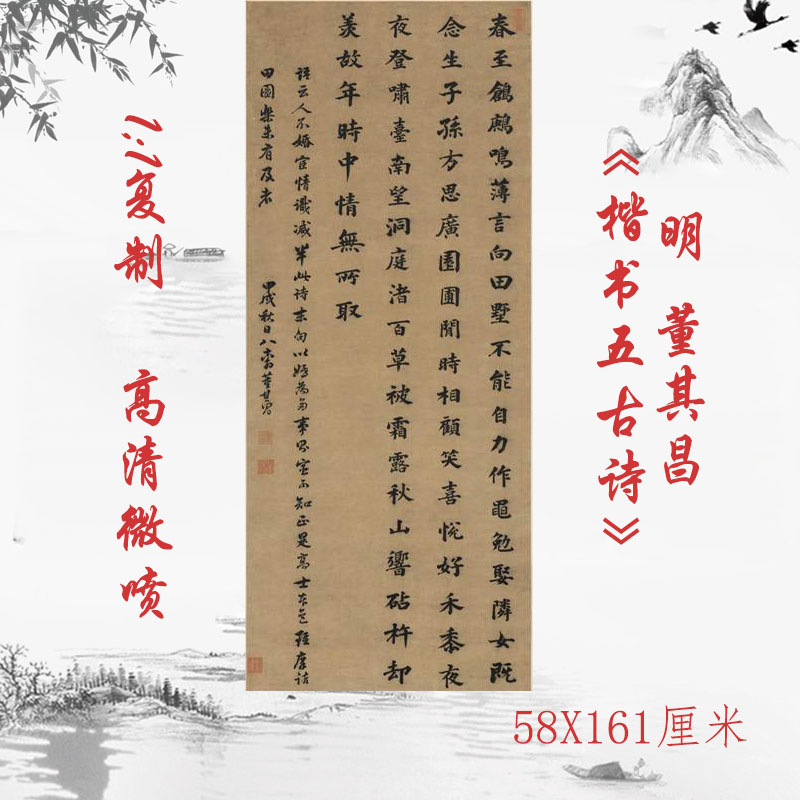 明 董其昌
《楷书五古诗》
春至鶬鶊鳴薄言向田墅不能自力作黽勉娶隣女既
念生子孫方思廣園圃閒時相顧笑喜悅好禾黍夜
夜登嘯臺南望洞庭渚百草被霜露秋山響砧杵却
羨故年時中情無所取
語云人不婚宦情識減半此诗末句以婚為事不知正是高士本色維摩诘
田園樂未有及者 甲戌秋日八十翁董其昌
1:1复制 高清微喷
58X161厘米